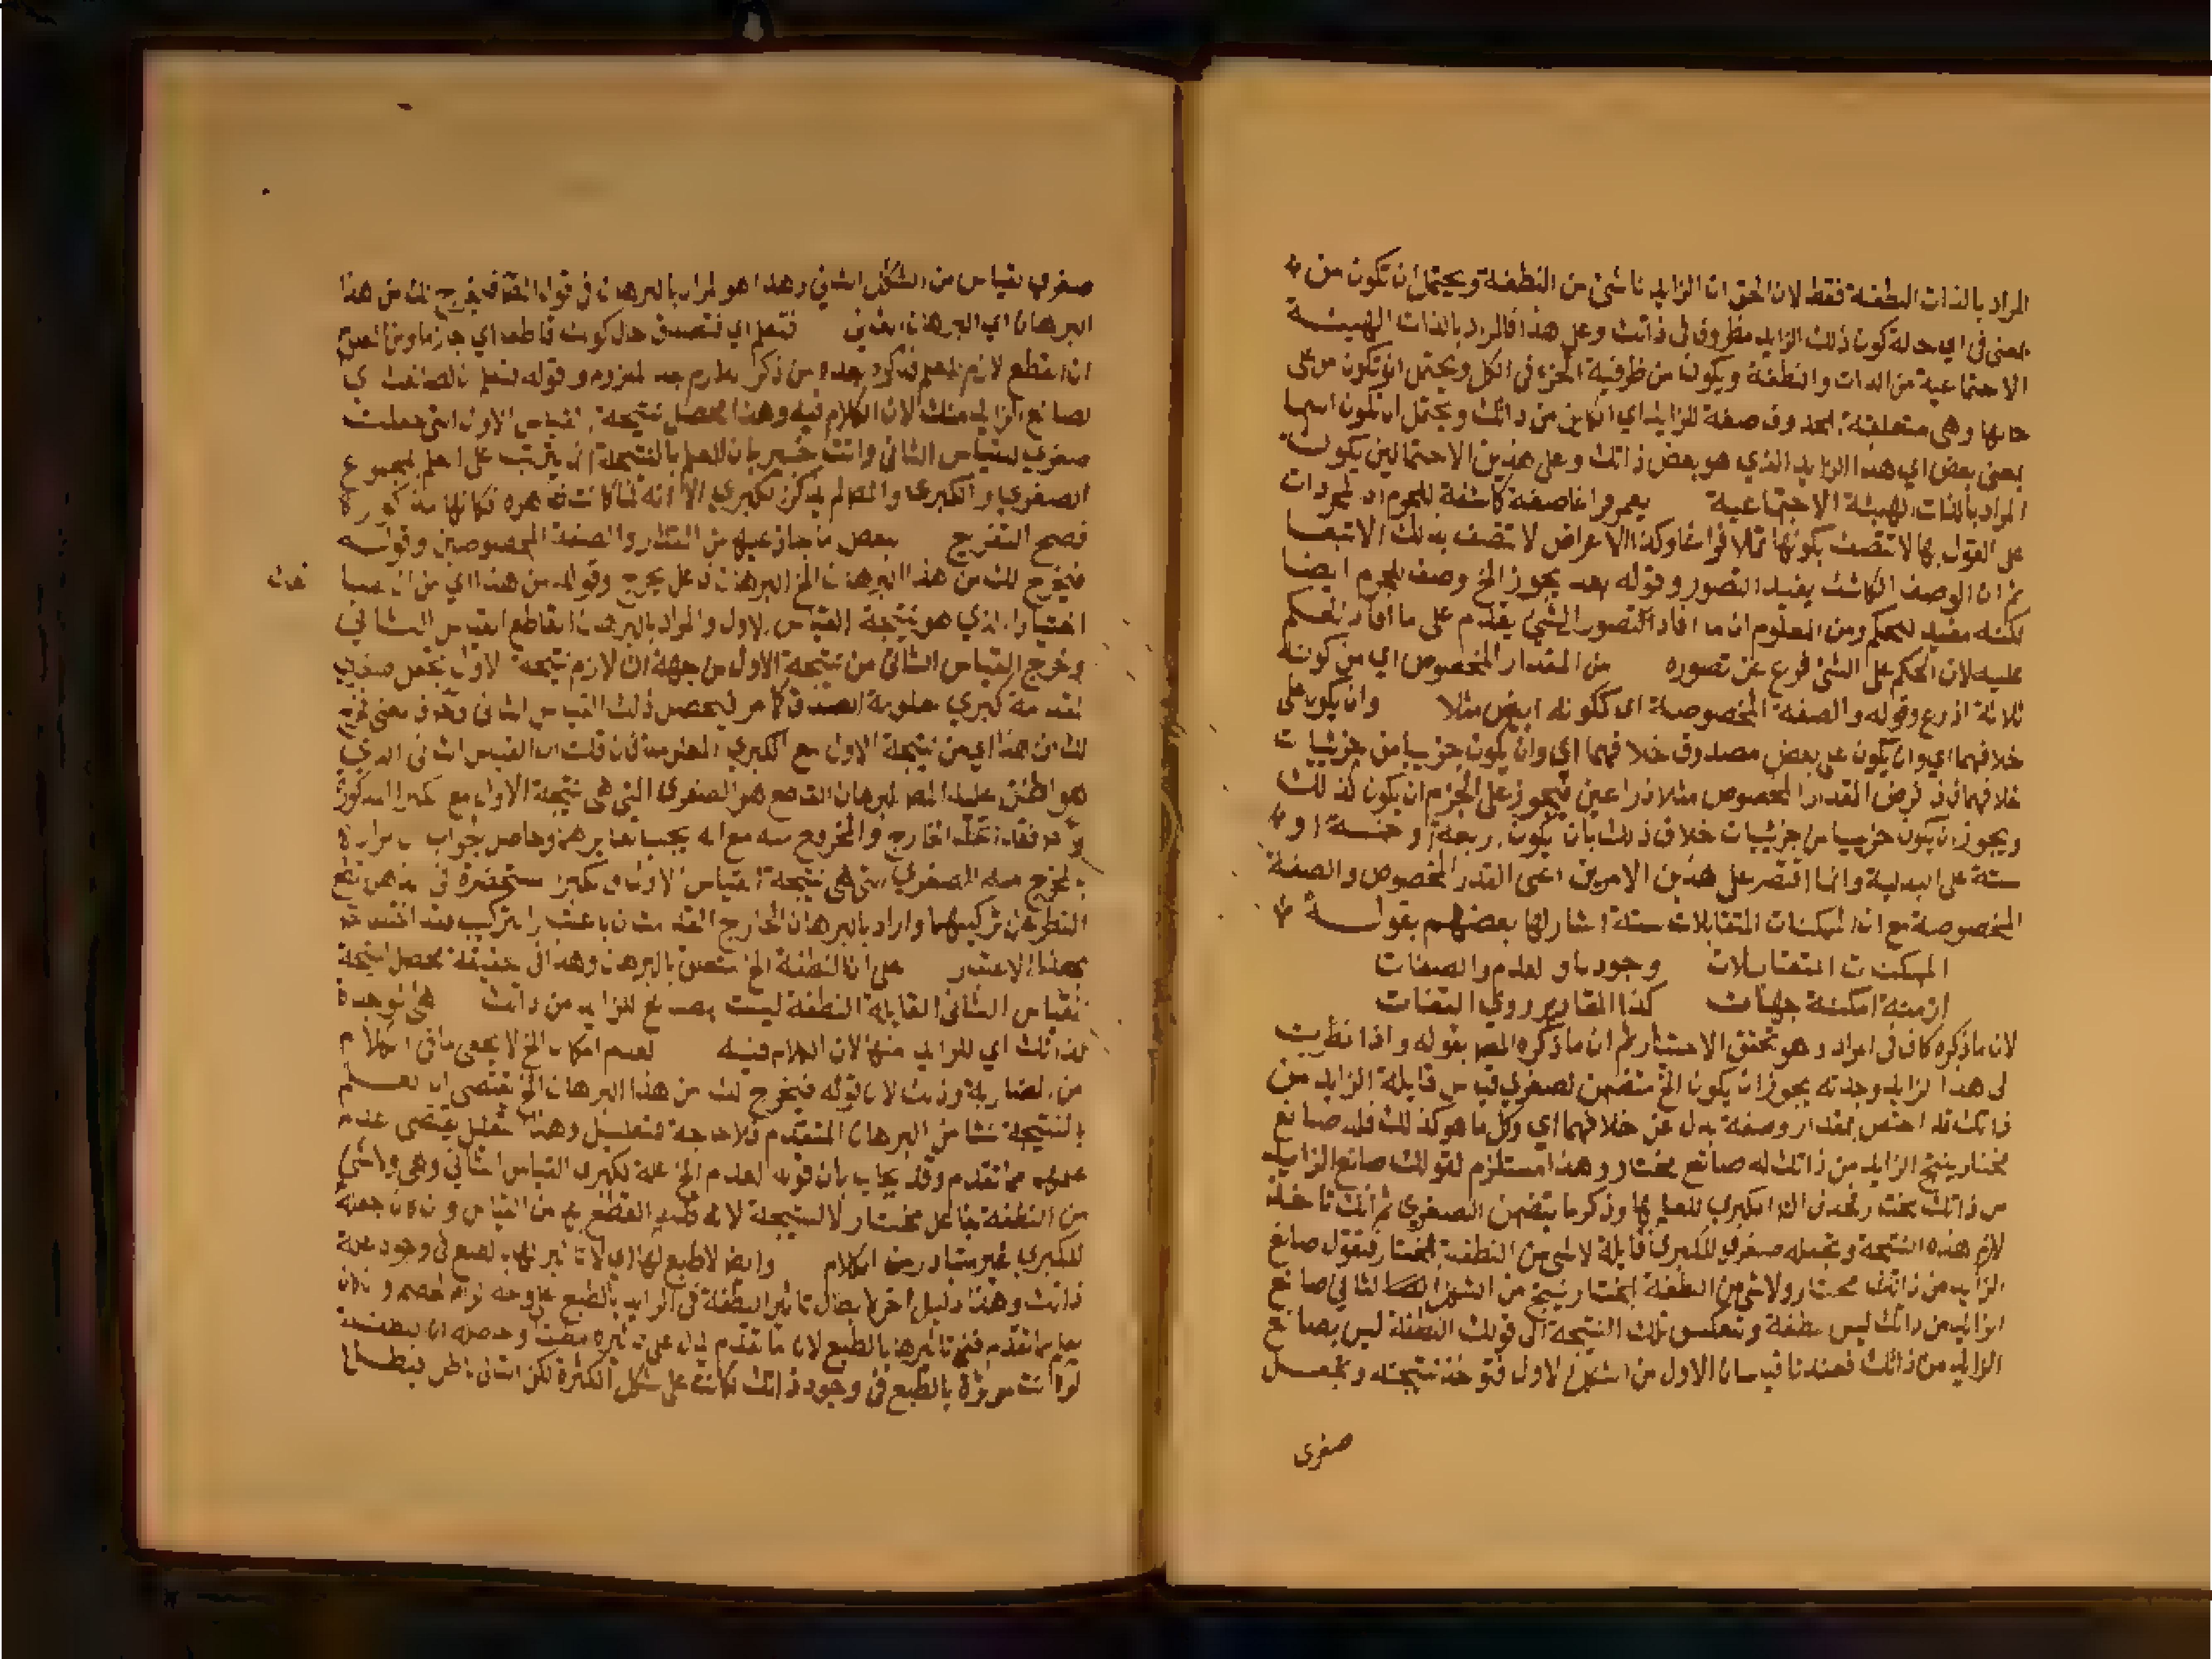 المراد بالذات النطفة فقط لان الحق ان الزايد ناشئ من النطفة ويحتمل ان تكون من
بمعنى في اي حالة كون ذلك الزايد مظروف في ذاتك وعلى هذا فالمراد بالذات الهيئة
الاجتماعية من الذات والنطفة ويكون من ظرفية الجزء في الكل ويحتمل ان تكون من على
حالها وهي متعلقة بمحذوف صفة للزايد اي الكاين من ذاتك ويحتمل ان تكون اسما
بمعنى بعض اي هذا الزايد الذي هو بعض ذاتك وعلى هذين الاحتمالين يكون
المراد بالذات الهيئة الاجتماعية يعمر فراغا صفة كاشفة للجرم اذ المجردات
على القول بها لا تتصف بكونها تملا فراغا وكذا الاعراض لا تتصف بذلك الا تبعا
ثم ان الوصف الكاشف يفيد التصور وقوله بعد يجوز الخ وصف للجرم ايضا
لكنه مفيد للحكم ومن المعلوم ان ما افاد التصور للشئ يقدم على ما افاد الحكم
عليه لان الحكم على الشئ فرع عن تصوره من المقدار المخصوص اي من كونه
ثلاثة اذرع وقوله والصفة المخصوصة اي ككونه ابيض مثلا وان يكون على
خلافهما اي وان يكون على بعض مصدوق خلافهما اي وان يكون جزييا من جزئيات
خلافهما فاذا فرض المقدار المخصوص مثلا ذراعين فيجوز على الجرم ان يكون كذلك
ويجوز ان يكون جزييا من جزئيات خلاف ذلك بان يكون اربعة او خمسة او
ستة على البدلية وانما اقتصر على هذين الامرين اعني القدر المخصوص والصفة
المخصوصة مع ان الممكنات المتقابلات ستة اشار لها بعضهم بقوله
الممكنات المتقابلات وجودنا والعدم والصفات
ازمنة امكنة جهات كذا المقادير روى الثقات
لان ما ذكره كاف في المراد وهو تحقق الاختيار ثم ان ما ذكره المص بقوله واذا نظرت
لى هذا الزايد وجدته يجوز ان يكون الخ متضمن لصغرى قياس قايلة الزايد من
ذاتك قد اختص بمقدار وصفة بدل عن خلافهما اي وكل ما هو كذلك فله صانع
مختار ينتج الزايد من ذاتك له صانع مختار وهذا مستلزم لقولك صانع الزايد
من ذاتك مختار فحذف الكبرى للعلم بها وذكر ما يتضمن الصغرى ثم انك تاخذ
لازم هذه النتيجة وتجعله صغرى للكبرى قايلة لا شئ من النطفة بمختار فتقول صانع
الزايد من ذاتك مختار ولا شئ من النطفة بمختار ينتج من الشكل الثاني صانع
الزايد من ذاتك ليس بنطفة وتنعكس تلك النتيجة الى قولك النطفة ليس بصانع
الزايد من ذاتك فعندنا قياسان الاول من الشكل الاول فتوخذ نتيجته وتجعل
صغرى
صغرى لقياس من الشكل الثاني وهذا هو المراد بالبرهان في قول المص فيخرج لك من هذا
البرهان اي البرهان الثاني فتعلم اي فتصدق حال كونك قاطعا اي جازما ومن المعلوم
ان القطع لازم للعلم فذكره بعده من ذكر اللازم بعد الملزوم وقوله فتعلم ان الصانع اي
لصانع الزايد منك لان الكلام فيه وهذا محصل نتيجة القياس الاول التي جعلت
صغرى للقياس الثاني وانت خبير بان العلم بالنتيجة انما يترتب على العلم بمجموع
الصغرى والكبرى والمص لم يذكر الكبرى الا انه لما كانت ظاهرة فكانها مذكورة
فصح التفريع ببعض ما جاز عليه من المقدار والصفة المخصوصين وقوله
فيخرج لك من هذا البرهان الخ البرهان فاعل يخرج وقوله من هذا اي من ان صا
اختيارا الذي هو نتيجة القياس الاول والمراد بالبرهان القاطع القياس الثاني
وخرج القياس الثاني من نتيجة الاول من جهة ان لازم نتيجة الاول تجعل صغرى
لمقدمة كبرى معلومة الصدق كما مر فيحصل ذلك القياس الثاني
لك من هذا اي من نتيجة الاول مع الكبرى المعلومة فان قلت ان القياس الثاني الذي
هو اطلق عليه المص البرهان القاطع هو الصغرى التي هي نتيجة الاول مع كبرا المذكورة
فقد اتحد الخارج والمخروج منه مع انه يجب تغايرهما وحاصل الجواب ان مراده
بالمخرج منه الصغرى التي هي نتيجة القياس الاول والكبرى مستحضرة في الذهن بقطع
النظر عن تركيبهما واراد بالبرهان الخارج المقدمتان باعتبار التركيب فقد اختلف
بهذا الاعتبار على ان النطفة الخ متعلق بالبرهان وهذا في حقيقة محصل نتيجة
القياس الثاني القايلة النطفة ليست بصانع للزايد من ذاتك هي الموجدة
لذاتك اي للزايد منها لان الكلام فيه لعدم امكان الخ لا يخفى ما في الكلام
من المضاربة وذلك لان قوله فيخرج لك من هذا البرهان الخ يقتضي ان العلم
بالنتيجة نشا من البرهان المتقدم فلا حاجة للتعليل وهذا التعليل يقتضي عدم
علمه مما تقدم وقد يجاب بان قوله لعدم الخ علة لكبرى القياس الثاني وهي ولا شئ
من النطفة بفاعل مختار لا للنتيجة لانه قد القطع به من القياس وان كان جعله
للكبرى غير متبادر من الكلام وايضا لا طبع لها اي لا تاثير لها بالطبع في وجود
ذاتك وهذا دليل اخر لابطال تاثير النطفة في الزايد بالطبع على وجه الزام الخصم وان كان
يعلم مما تقدم نفي تاثيرها بالطبع لان ما تقدم يدل على
لو كانت موثرة بالطبع في وجود ذاتك لكانت على شكل الكرة لكن التالي باطل فبطل